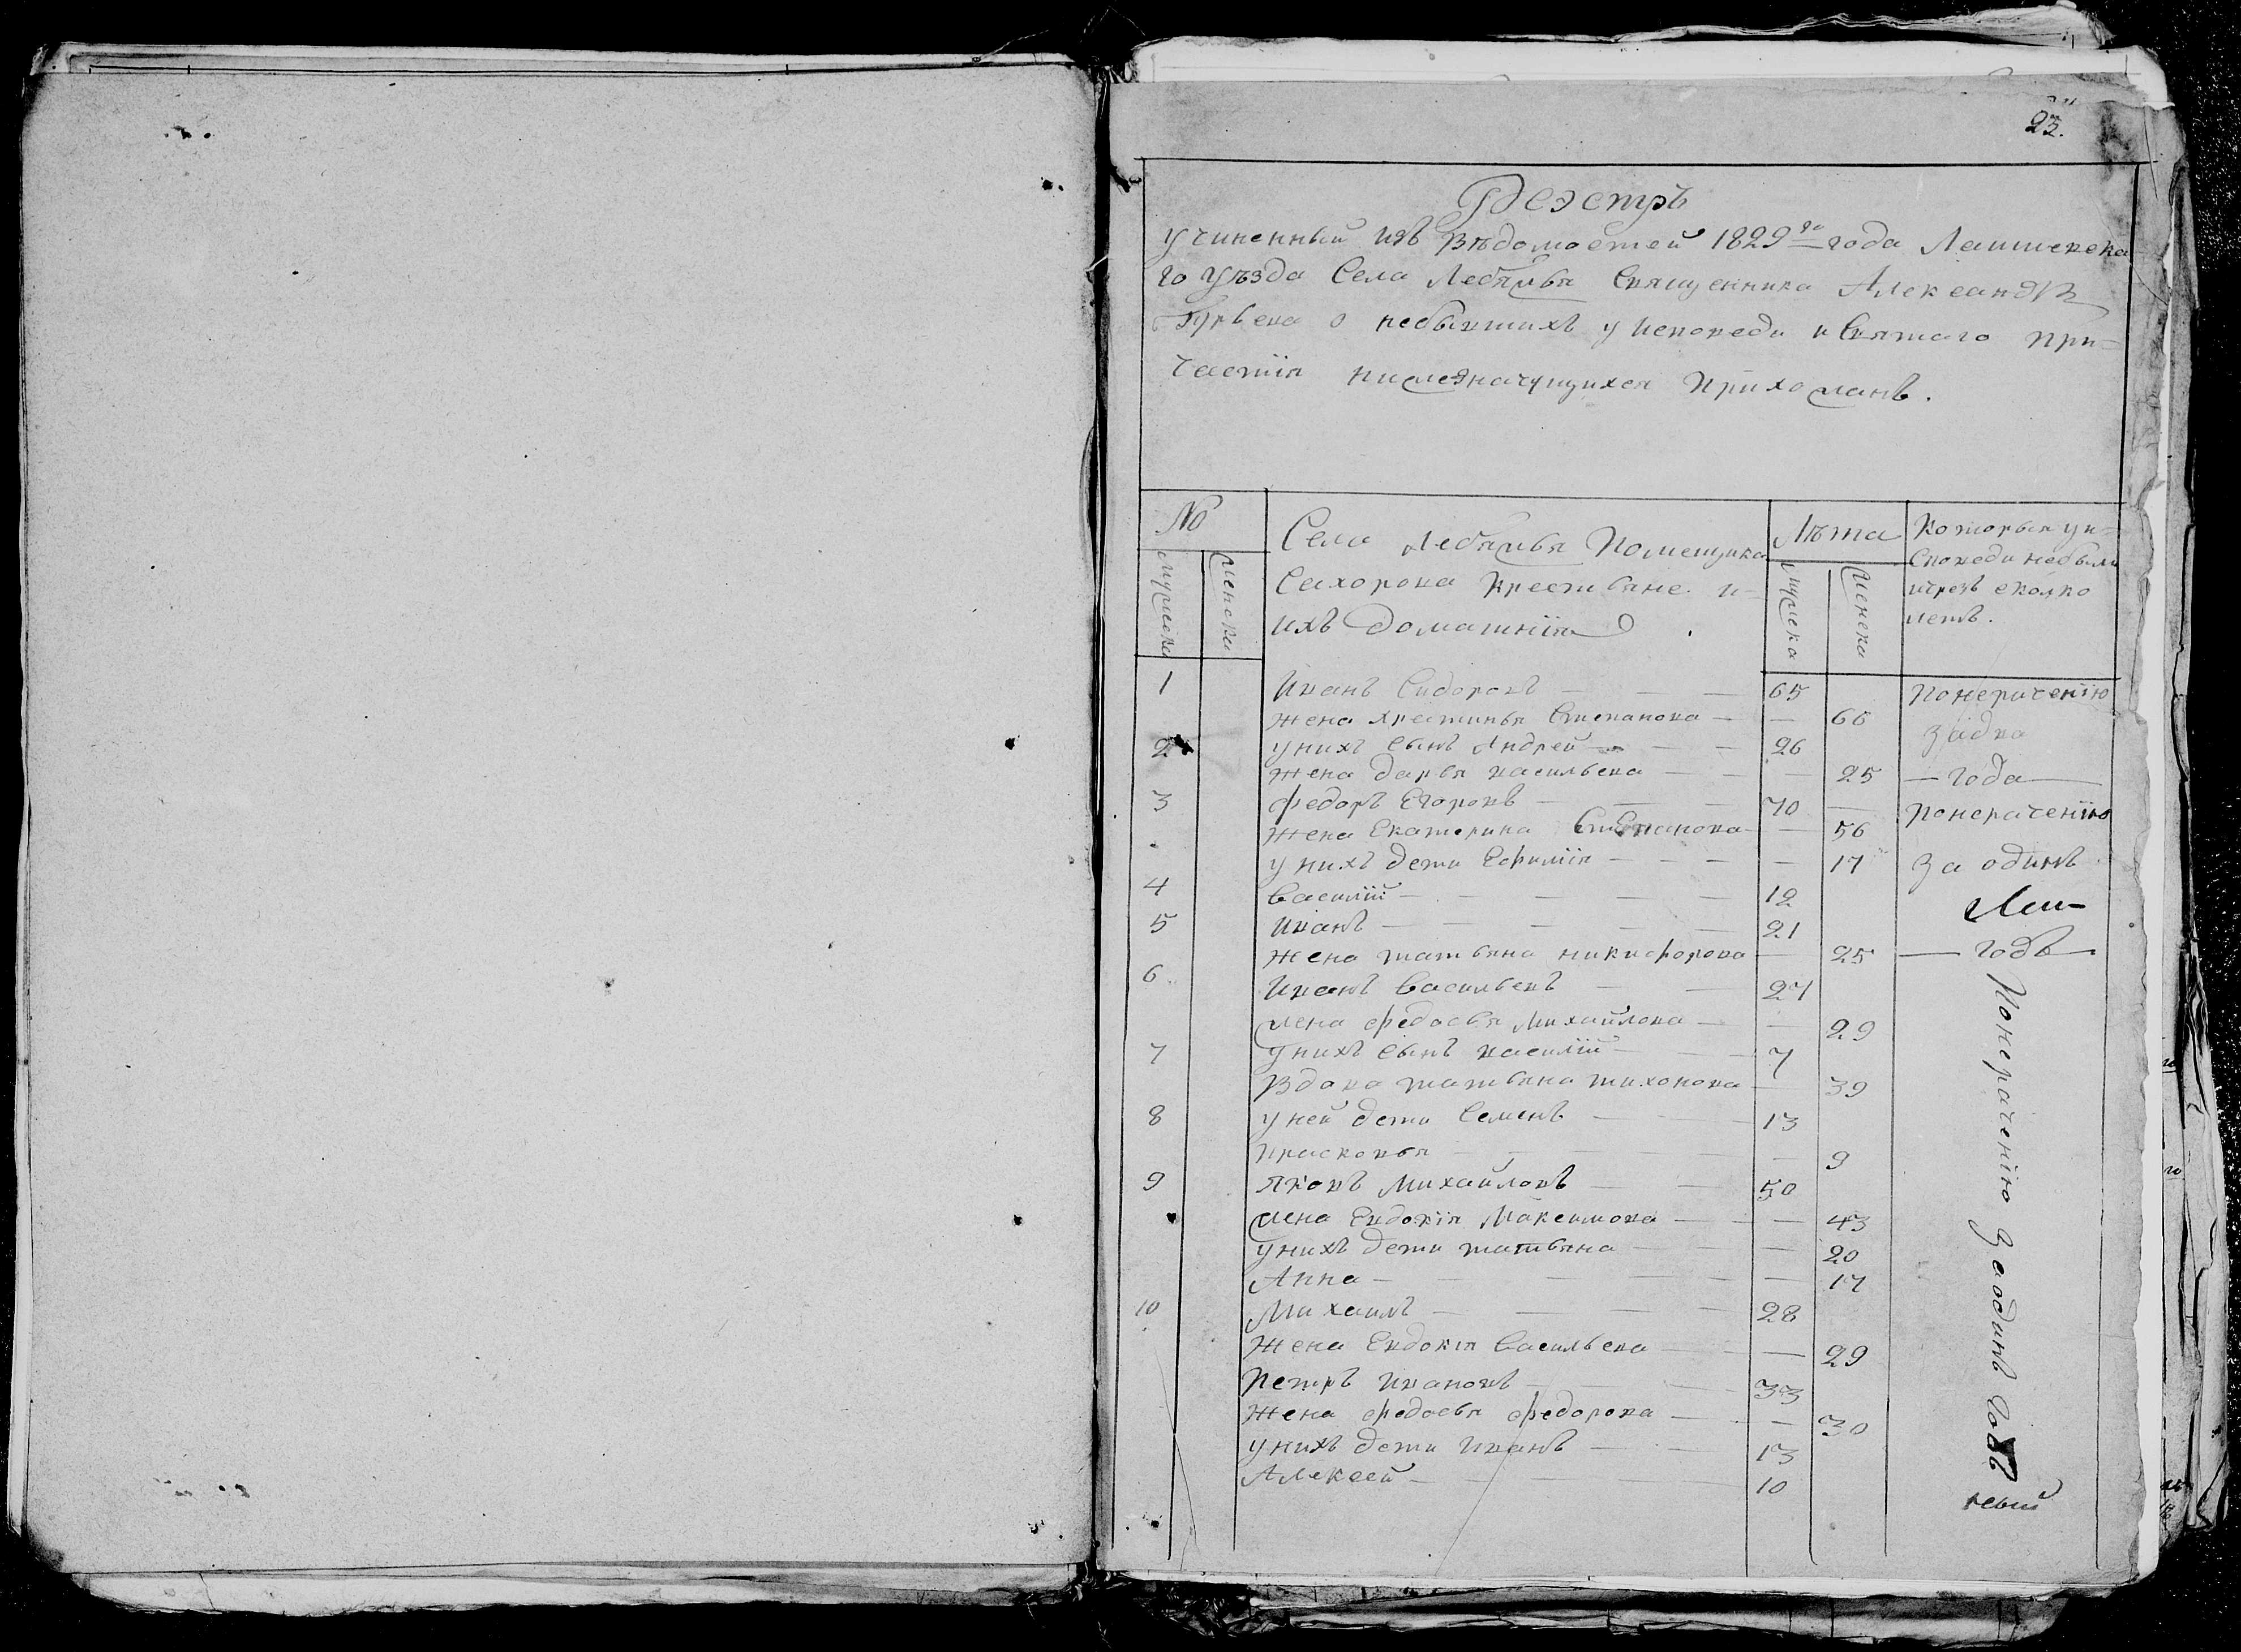 23.
Реэстръ
учиненный изъ Вѣдомостей 1829го года Лаишевска
го уѣзда Села Лебяжья Священника Александра
о небывшихъ у исповеди и Святаго при-
частiя нижезначущихся прихожанъ.
№ Села Лебяжья Помещика Лѣта Которыя у и-
споведи небыли
Сахорова крестьяне и
чрезъ сколко
ихъ домашнiя летъ.
мужеска женска мужеска женска
1 Иванъ Сидоровъ — — — 65 Понерачению
жена Хрестинья Степанова — — 66
2 у нихъ сынъ Андрей — — — 26 задва
жена дарья васильева — — — 25 — года —
3 федоръ Егоровъ — — — 70 —
жена Екатерина Степанова — — 56 понерачению
у нихъ дети Ефимiя — — — — 17 за одинъ
4 Василiй — — — — — 12
5 Иванъ — — — — — 21
жена татьяна никифорова — 25 — годъ —
6 Иванъ Васильевъ — — 27
жена федосья Михайлова — — 29
7 у нихъ сынъ василiй — — 7
Вдова татьяна тихонова — 39
8 у ней дети Семенъ — — 13
прасковья — — — — — 9
9 Яковъ Михайловъ — — 50
жена Евдокiя Максимова — — — 43
у нихъ дети татьяна — — — 20
Анна — — — — — — 17
10 Михаилъ — — — — 28
Жена Евдокiя Васильева — — — 29
Петръ Ивановъ — — — 33
Жена федосья федорова — — — 30
у нихъ дети Иванъ — — 13
Алексей — — — 10
Понерачению заодинъ годъ